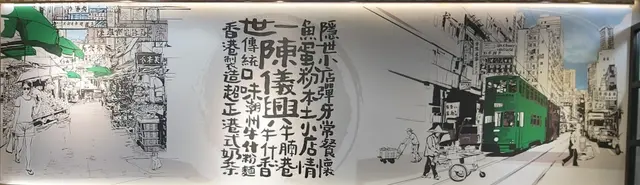 隱世小店彈牙常餐懷
魚蛋粉本土小店情
一陳儀興
牛腩港
牛什香
世傳統口味潮州牛什粉麵
香港製造超正港式奶茶